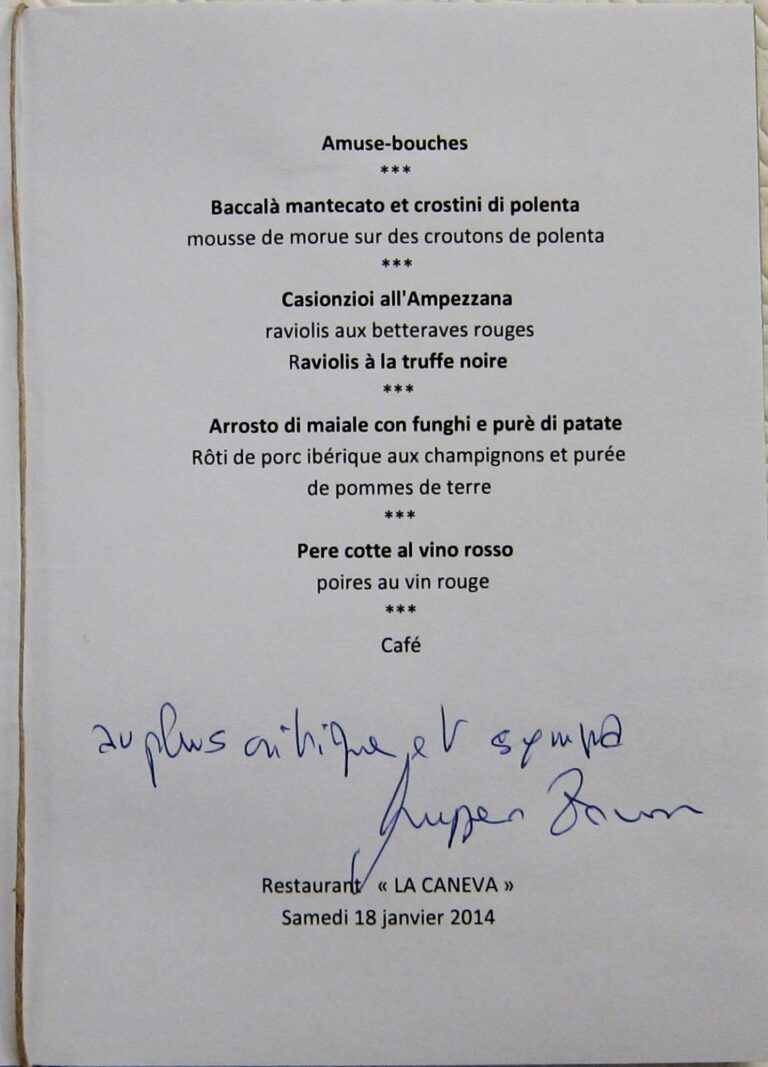 Amuse-bouches
***
Baccalà mantecato et crostini di polenta
mousse de morue sur des croutons de polenta
***
Casionzioi all'Ampezzana
raviolis aux betteraves rouges
Raviolis à la truffe noire
***
Arrosto di maiale con funghi e purè di patate
Rôti de porc ibérique aux champignons et purée
de pommes de terre
***
Pere cotte al vino rosso
poires au vin rouge
***
Café
au plus critique et sympa
Restaurant « LA CANEVA »
Samedi 18 janvier 2014